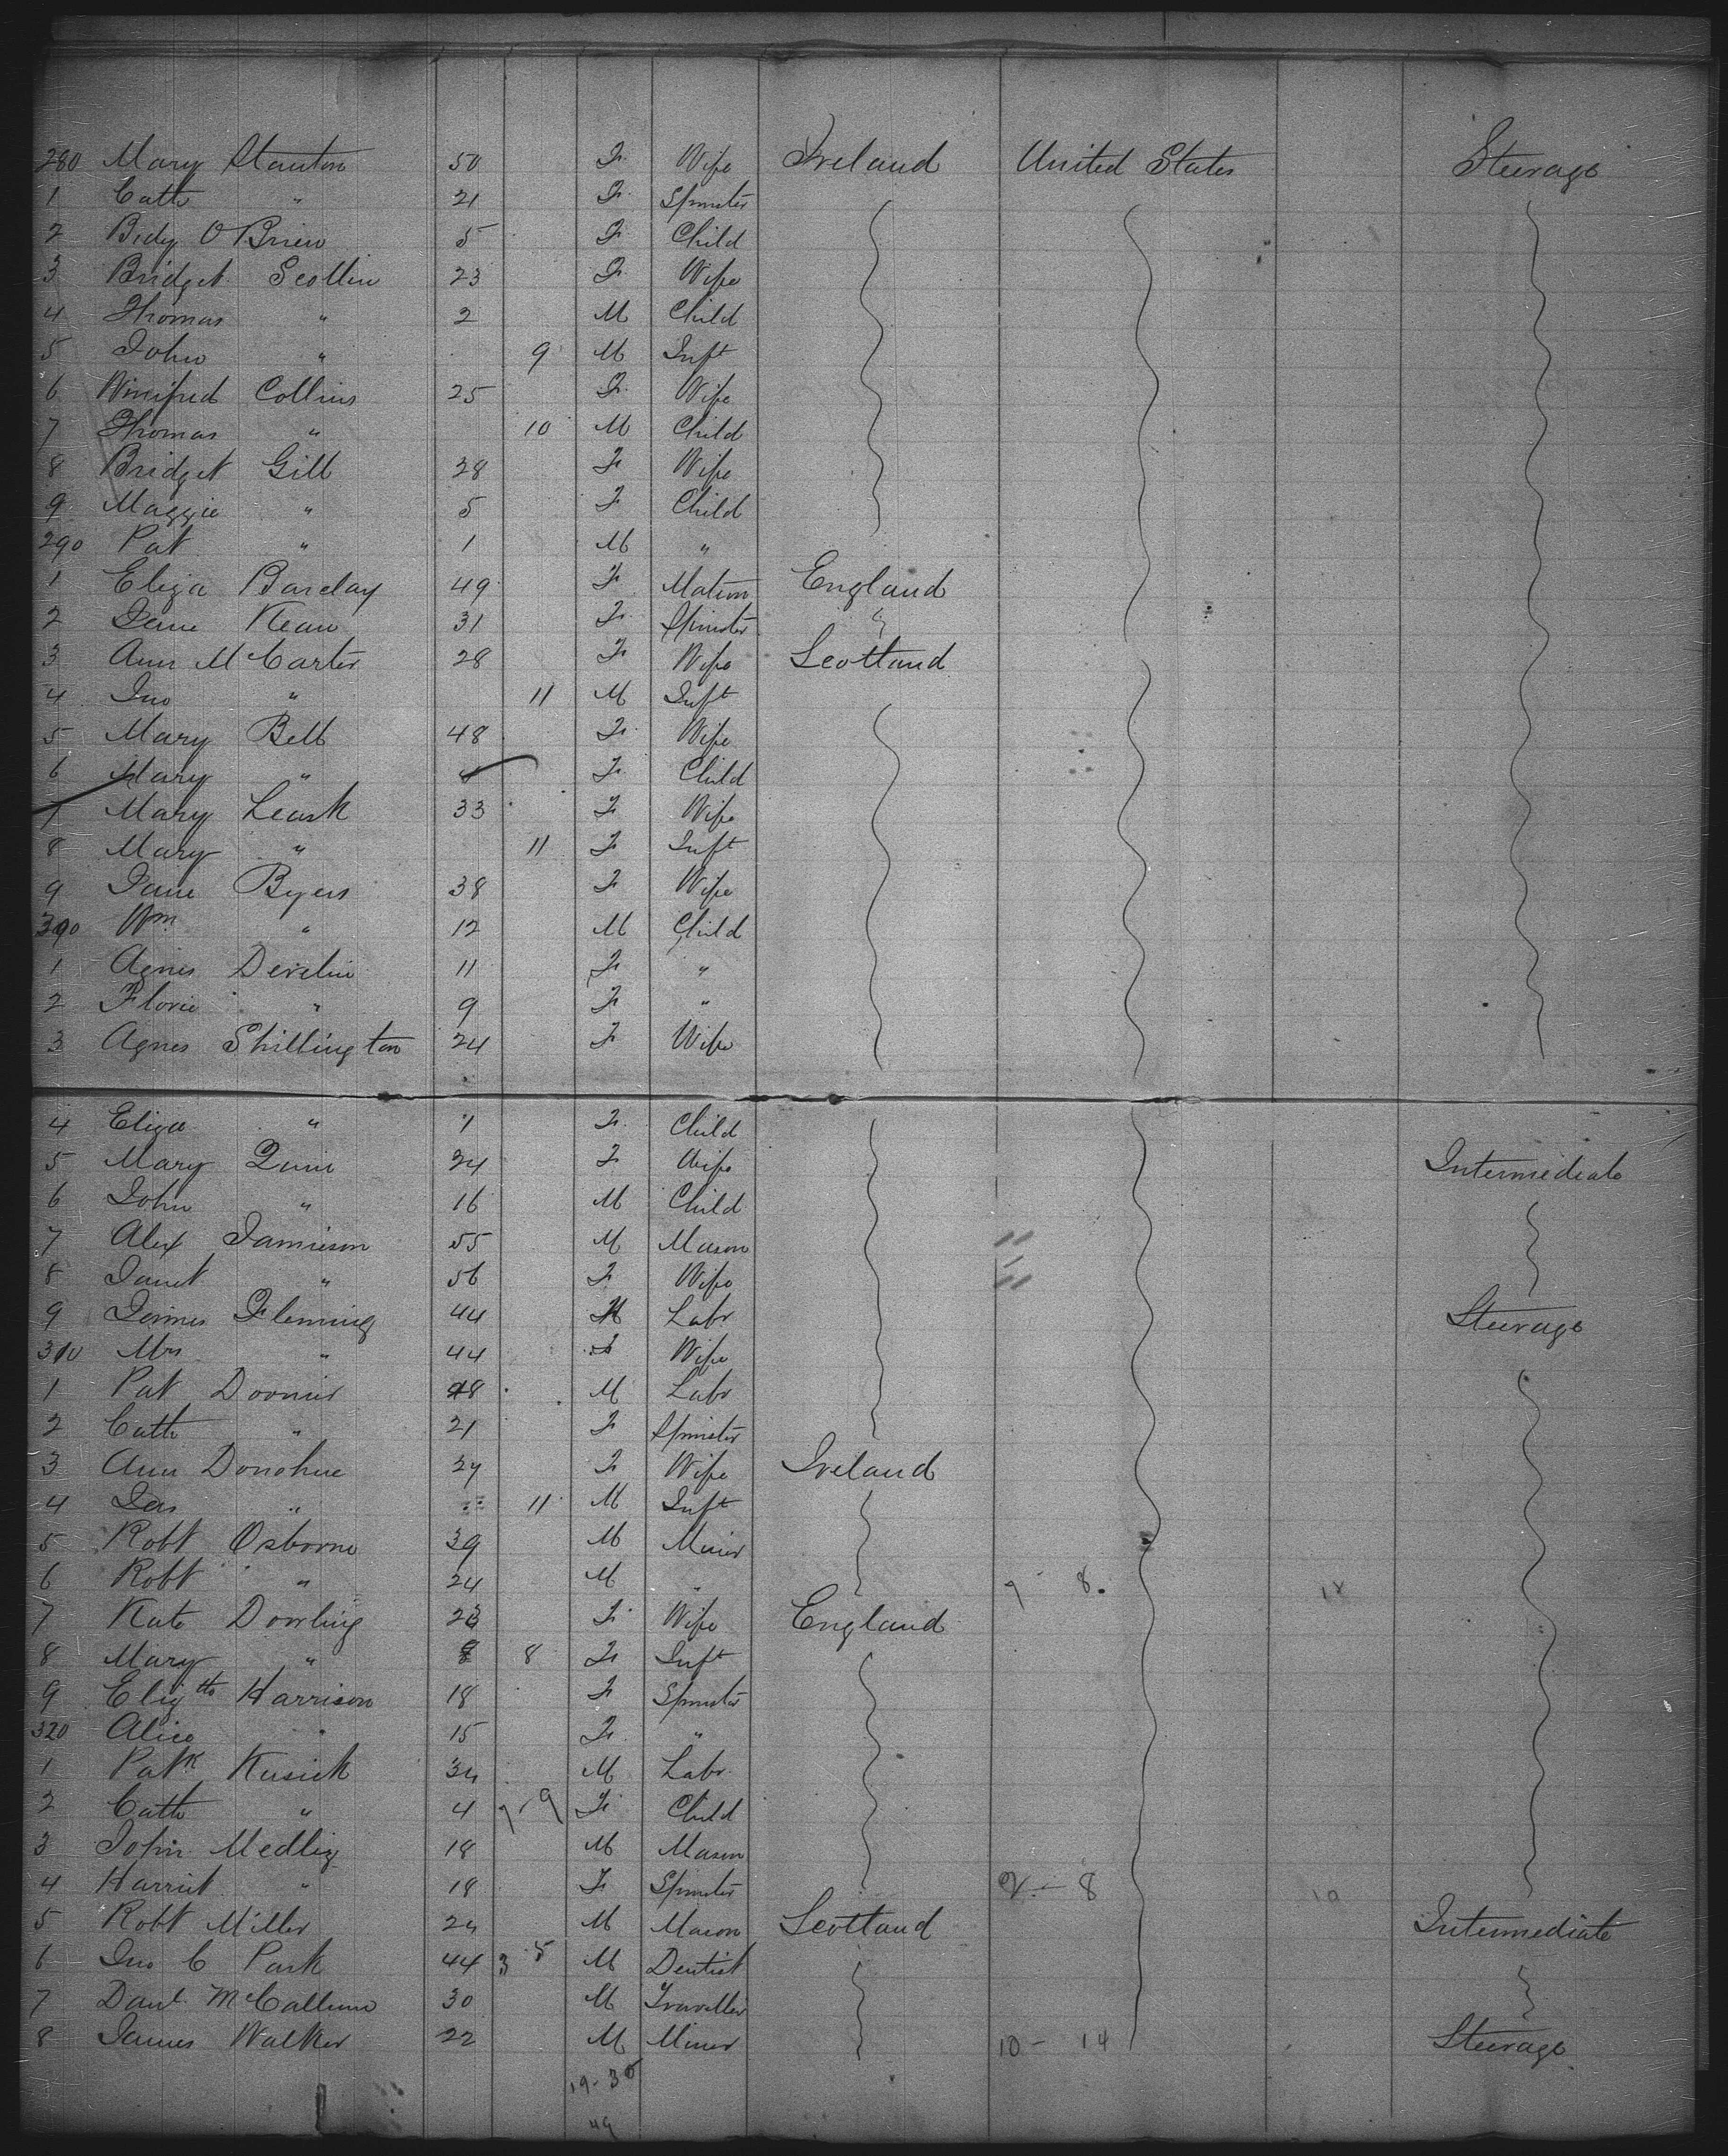 280 Mary Stanton 50 F Wife Ireland United States Steerage
1 Cath " 21 F Spinster
2 Bidy O'Brien 5 F Child
3 Bridget Scollin 23 F Wife
4 Thomas " 2 M Child
5 John " 9 M Inft
6 Winifred Collins 25 F Wife
7 Thomas " 10 M Child
8 Bridget Gill 28 F Wife
9 Maggie " 5 F Child
290 Pat " 1 M "
1 Eliza Barclay 49 F Matron England
2 Jane Kean 31 F Spinster "
3 Ann McCarter 28 F Wife Scotland
4 Jno " 11 M Inft
5 Mary Bell 48 F Wife
6 Mary " F Child
7 Mary Leask 33 F Wife
8 Mary " 11 F Inft
9 Jane Byers 38 F Wife
300 Wm " 12 M Child
1 Agnes Develin 11 F "
2 Florie " 9 F "
3 Agnes Shillington 24 F Wife
4 Eliza " 1 F Child
5 Mary Quin 34 F Wife Intermediate
6 John " 16 M Child
7 Alex Jamieson 55 M Mason
8 Janet " 56 F Wife
9 James Fleming 44 M Labr Steerage
310 Mrs " 44 F Wife
1 Pat 48 M Labr
2 Cath " 21 F Spinster
3 Ann Donohue 27 F Wife Ireland
4 Jas " 11 M Inft
5 Robt Osborne 39 M Miner
6 Robt " 24 M " 9 - 8 18
7 Kate Dowling 23 F Wife England
8 Mary " 8 F Inft
9 Elizth Harrison 18 F Spinster
320 Alice " 15 F "
1 Patk Kusick 34 M Labr
2 Cath " 4 F Child
3 John Medley 18 M Mason
4 Harriet " 18 F Spinster 2 - 8 10
5 Robt Miller 24 M Mason Scotland Intermediate
6 Jno C Park 44 3 5 M Dentist
7 Danl McCallum 30 M Traveller
8 James Walker 22 M Miner 10 - 14 Steerage
19 - 30
49